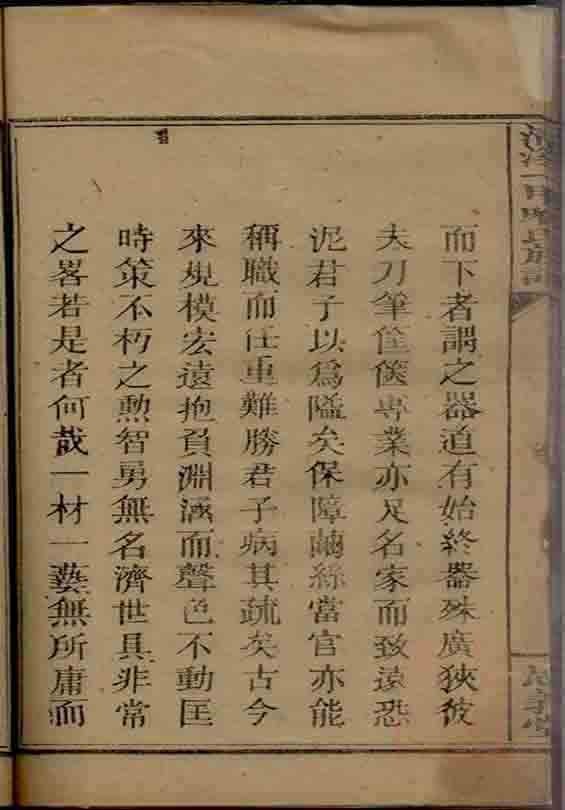 而下者謂之器道有始終器殊廣狹彼
夫刀筆筐篋專業亦足名家而致遠恐
泥君子以爲隘矣保障繭絲當官亦能
稱職而任重難勝君子病其疏矣古今
來規模宏遠抱負淵涵而聲色不動匡
時策不朽之勲智勇無名濟世具非常
之畧若是者何哉一材一藝無所庸而